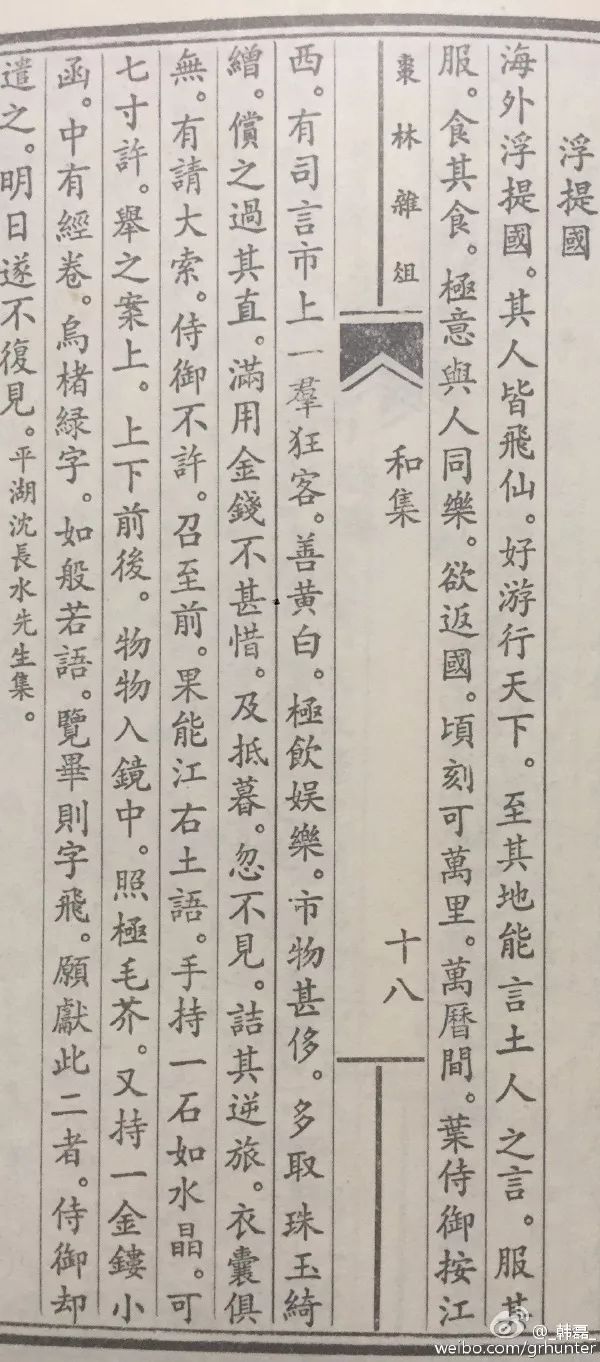 浮提國
海外浮提國。其人皆飛仙。好游行天下。至其地能言土人之言。服其
服。食其食。極意與人同樂。欲返國。頃刻可萬里。萬曆間。葉侍御按江
棗林雜俎
和集
十八
西。有司言市上一羣狂客。善黄白。極飲娱樂。市物甚侈。多取珠玉綺
繒。償之過其直。滿用金錢不甚惜。及抵暮。忽不見。詰其逆旅。衣囊俱
無。有請大索。侍御不許。召至前。果能江右土語。手持一石如水晶。可
七寸許。舉之案上。上下前後。物物入鏡中。照極毛芥。又持一金鏤小
函。中有經卷。烏楮綠字。如般若語。覽畢則字飛。願獻此二者。侍御却
遣之。明日遂不復見。平湖沈長水先生集。
@_韩磊_
weibo.com/grhunter